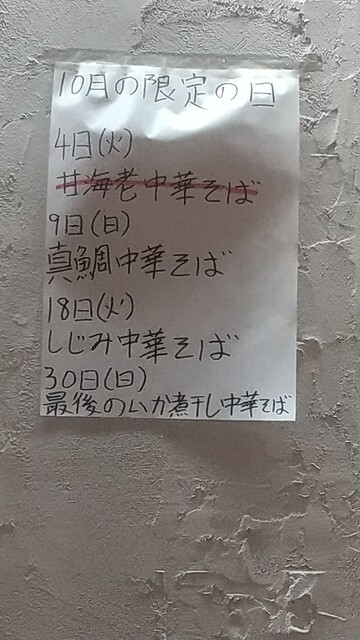 10月の限定の日
4日(火)
甘海老中華そば
9日(日)
真鯛中華そば
18日(火)
しじみ中華そば
30日(日)
最後のムガ煮干し中華そば